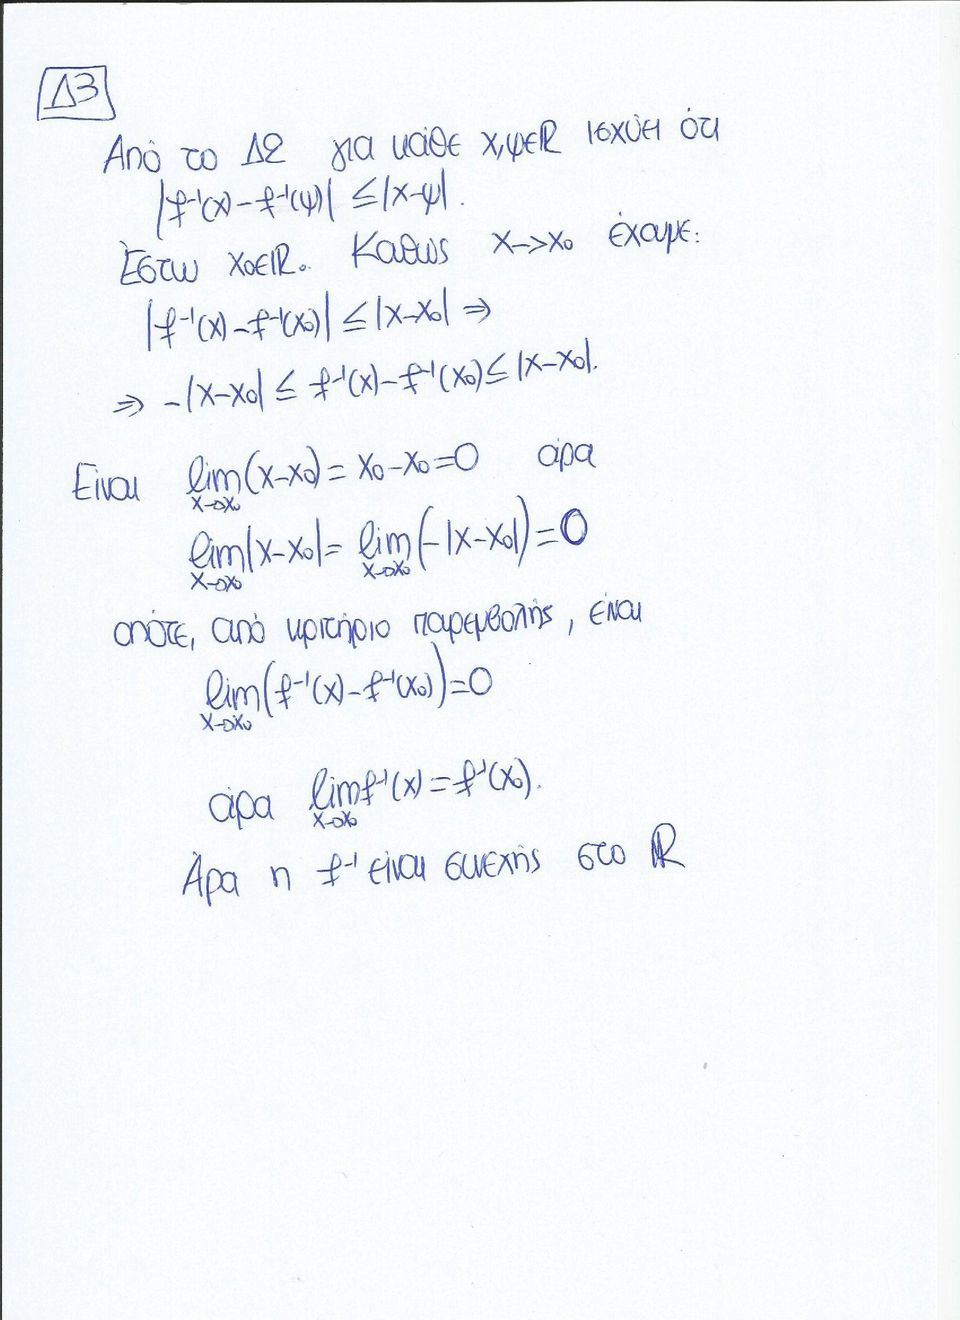 Δ3
Από το Δ2 για κάθε x,ψ∈ℝ ισχύει ότι
|f⁻¹(x)-f⁻¹(ψ)| ≤|x-ψ|.
Έστω x₀∈ℝ. Καθώς x->x₀ έχουμε:
|f⁻¹(x)-f⁻¹(x₀)| ≤|x-x₀| ⇒
⇒ -|x-x₀| ≤ f⁻¹(x)-f⁻¹(x₀)≤ |x-x₀|.
Είναι lim(x-x₀)= x₀-x₀=0 άρα
x→x₀
lim|x-x₀|= lim(-|x-x₀|)=0
x→x₀ x→x₀
οπότε, από κριτήριο παρεμβολής, είναι
lim(f⁻¹(x)-f⁻¹(x₀))=0
x→x₀
άρα limf⁻¹(x)=f⁻¹(x₀).
x→x₀
Άρα η f⁻¹ είναι συνεχής στο ℝ